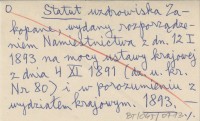 Statut uzdrowiska Za-
kopane, wydany rozporządze-
niem Namiestnictwa z dn. 12 I
1893 na mocy ustawy krajowej
z dnia 4 XI 1891 (dz. u. kr.
Nr 80) i w porozumieniu z
wydziałem krajowym. 1893.